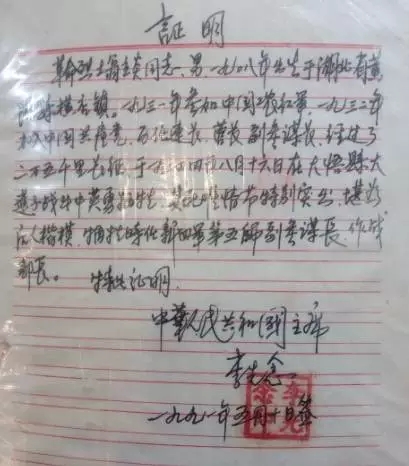 証明
革命烈士 同志,男,一九〇八年生于湖北省黄
陂县横店镇。一九三一年参加中国工农红军,一九三二年
加入中国共产党,历任连长、营长、副参谋长,经过了
二万五千里长征,于一九四四年八月十六日在大悟县大
战斗中英勇牺牲,其 牲情节特别突出,堪为
后人楷模,牺牲时任新四军第五师副参谋长、作战
部长。 特此证明。
中華人民共和国主席
李先念
一九九一年五月十日